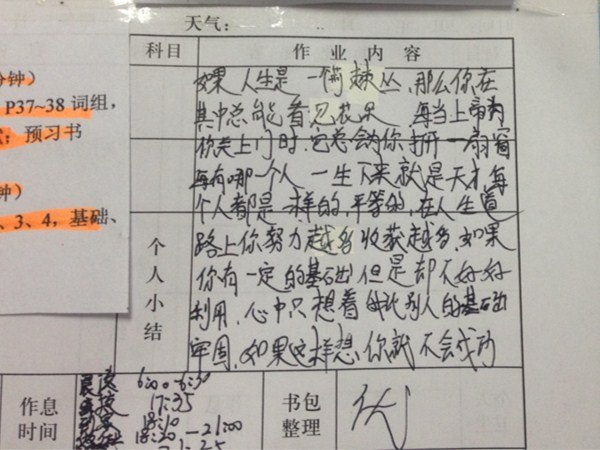 天气:
科目 作业内容
钟)
P37~38 词组,
预习书
钟)
3、4,基础、
如果人生是一簡棘丛,那么你在
其中总能看见花朵 每当上帝为
你关上门时,它总会为你打开一扇窗
每有哪一个人一生下来就是天才每
个人都是一样的,平等的,在人生道
路上你努力越多收获越多,如果
你有一定的基础但是却不好好
利用,心中只想着 比别人的基础
牢固,如果这样想,你就不会成功
个人小结
作息时间
晨读 6:00-6:30
17:35
18:10
18:20 —21:00
书包整理
优